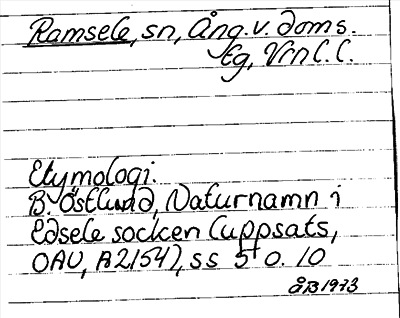 Ramsele, sn, Ång. v. doms.
tg, Vrnl.l.
Etymologi:
B. Östlund, Naturnamn i
Edsele socken (uppsats,
OAU, A2154), ss 5 o. 10
ÅB 1973